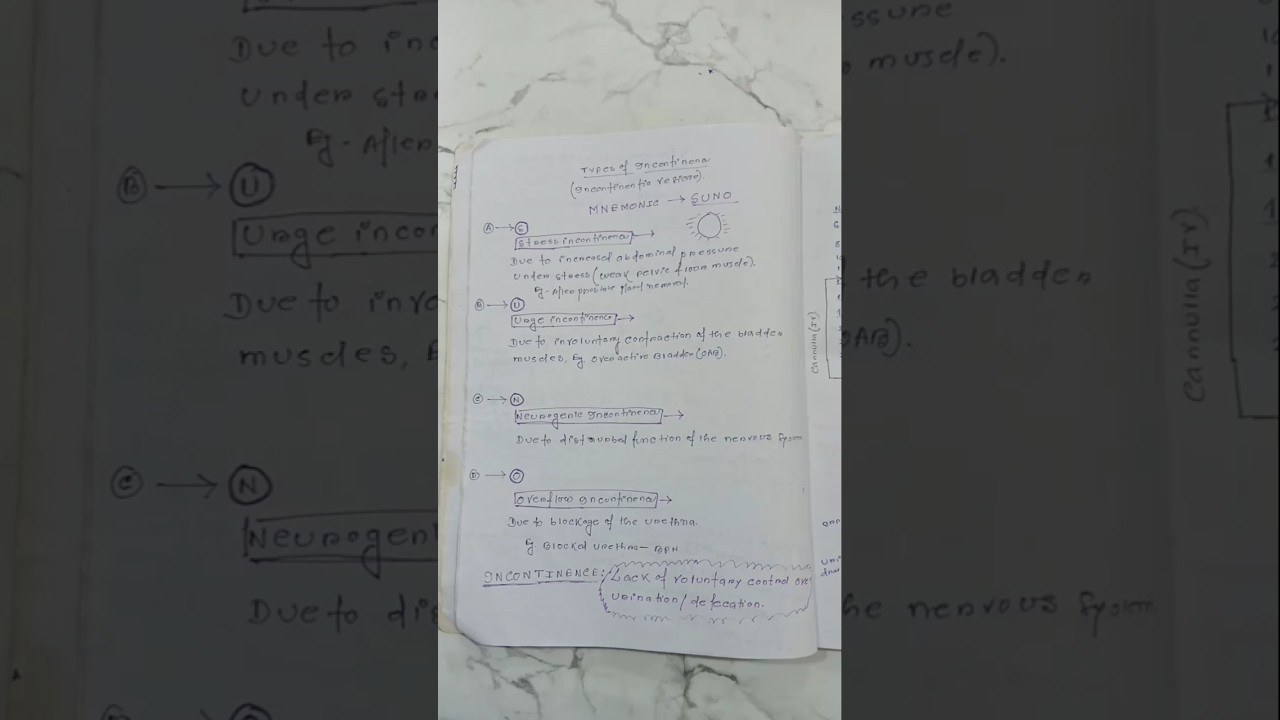 Types of Incontinence
(Incontinentia vesicae).
MNEMONIC → SUNO
A → S
Stress incontinence →
Due to increased abdominal pressure
under stress (weak pelvic floor muscle).
Eg - After prostate gland removal.
B → U
Urge incontinence →
Due to involuntary contraction of the bladder
muscles, Eg Overactive Bladder (OAB).
C → N
Neurogenic Incontinence →
Due to disturbed function of the nervous System
D → O
Overflow Incontinence →
Due to blockage of the urethra.
Eg Blocked urethra - BPH
INCONTINENCE: Lack of voluntary control over
urination / defecation.
Cannula (IV)